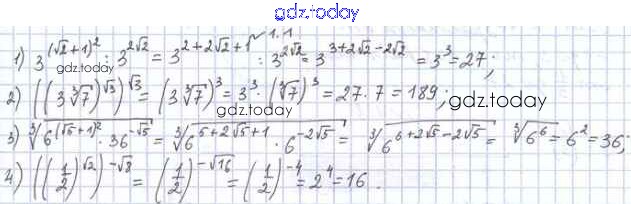 gdz.today
1) 3^{(√2+1)^2} : 3^{2√2} = 3^{2+2√2+1} : 3^{2√2} = 3^{3+2√2-2√2} = 3^3 = 27;
gdz.today
2) ((3∛7)^{√3})^{√3} = (3∛7)^3 = 3^3 · (∛7)^3 = 27 · 7 = 189;
gdz.today
3) ∛(6^{(√5+1)^2} · 36^{-√5}) = ∛(6^{5+2√5+1} · 6^{-2√5}) = ∛(6^{6+2√5-2√5}) = ∛(6^6) = 6^2 = 36;
gdz.today
4) ((1/2)^{√2})^{-√8} = (1/2)^{-√16} = (1/2)^{-4} = 2^4 = 16.